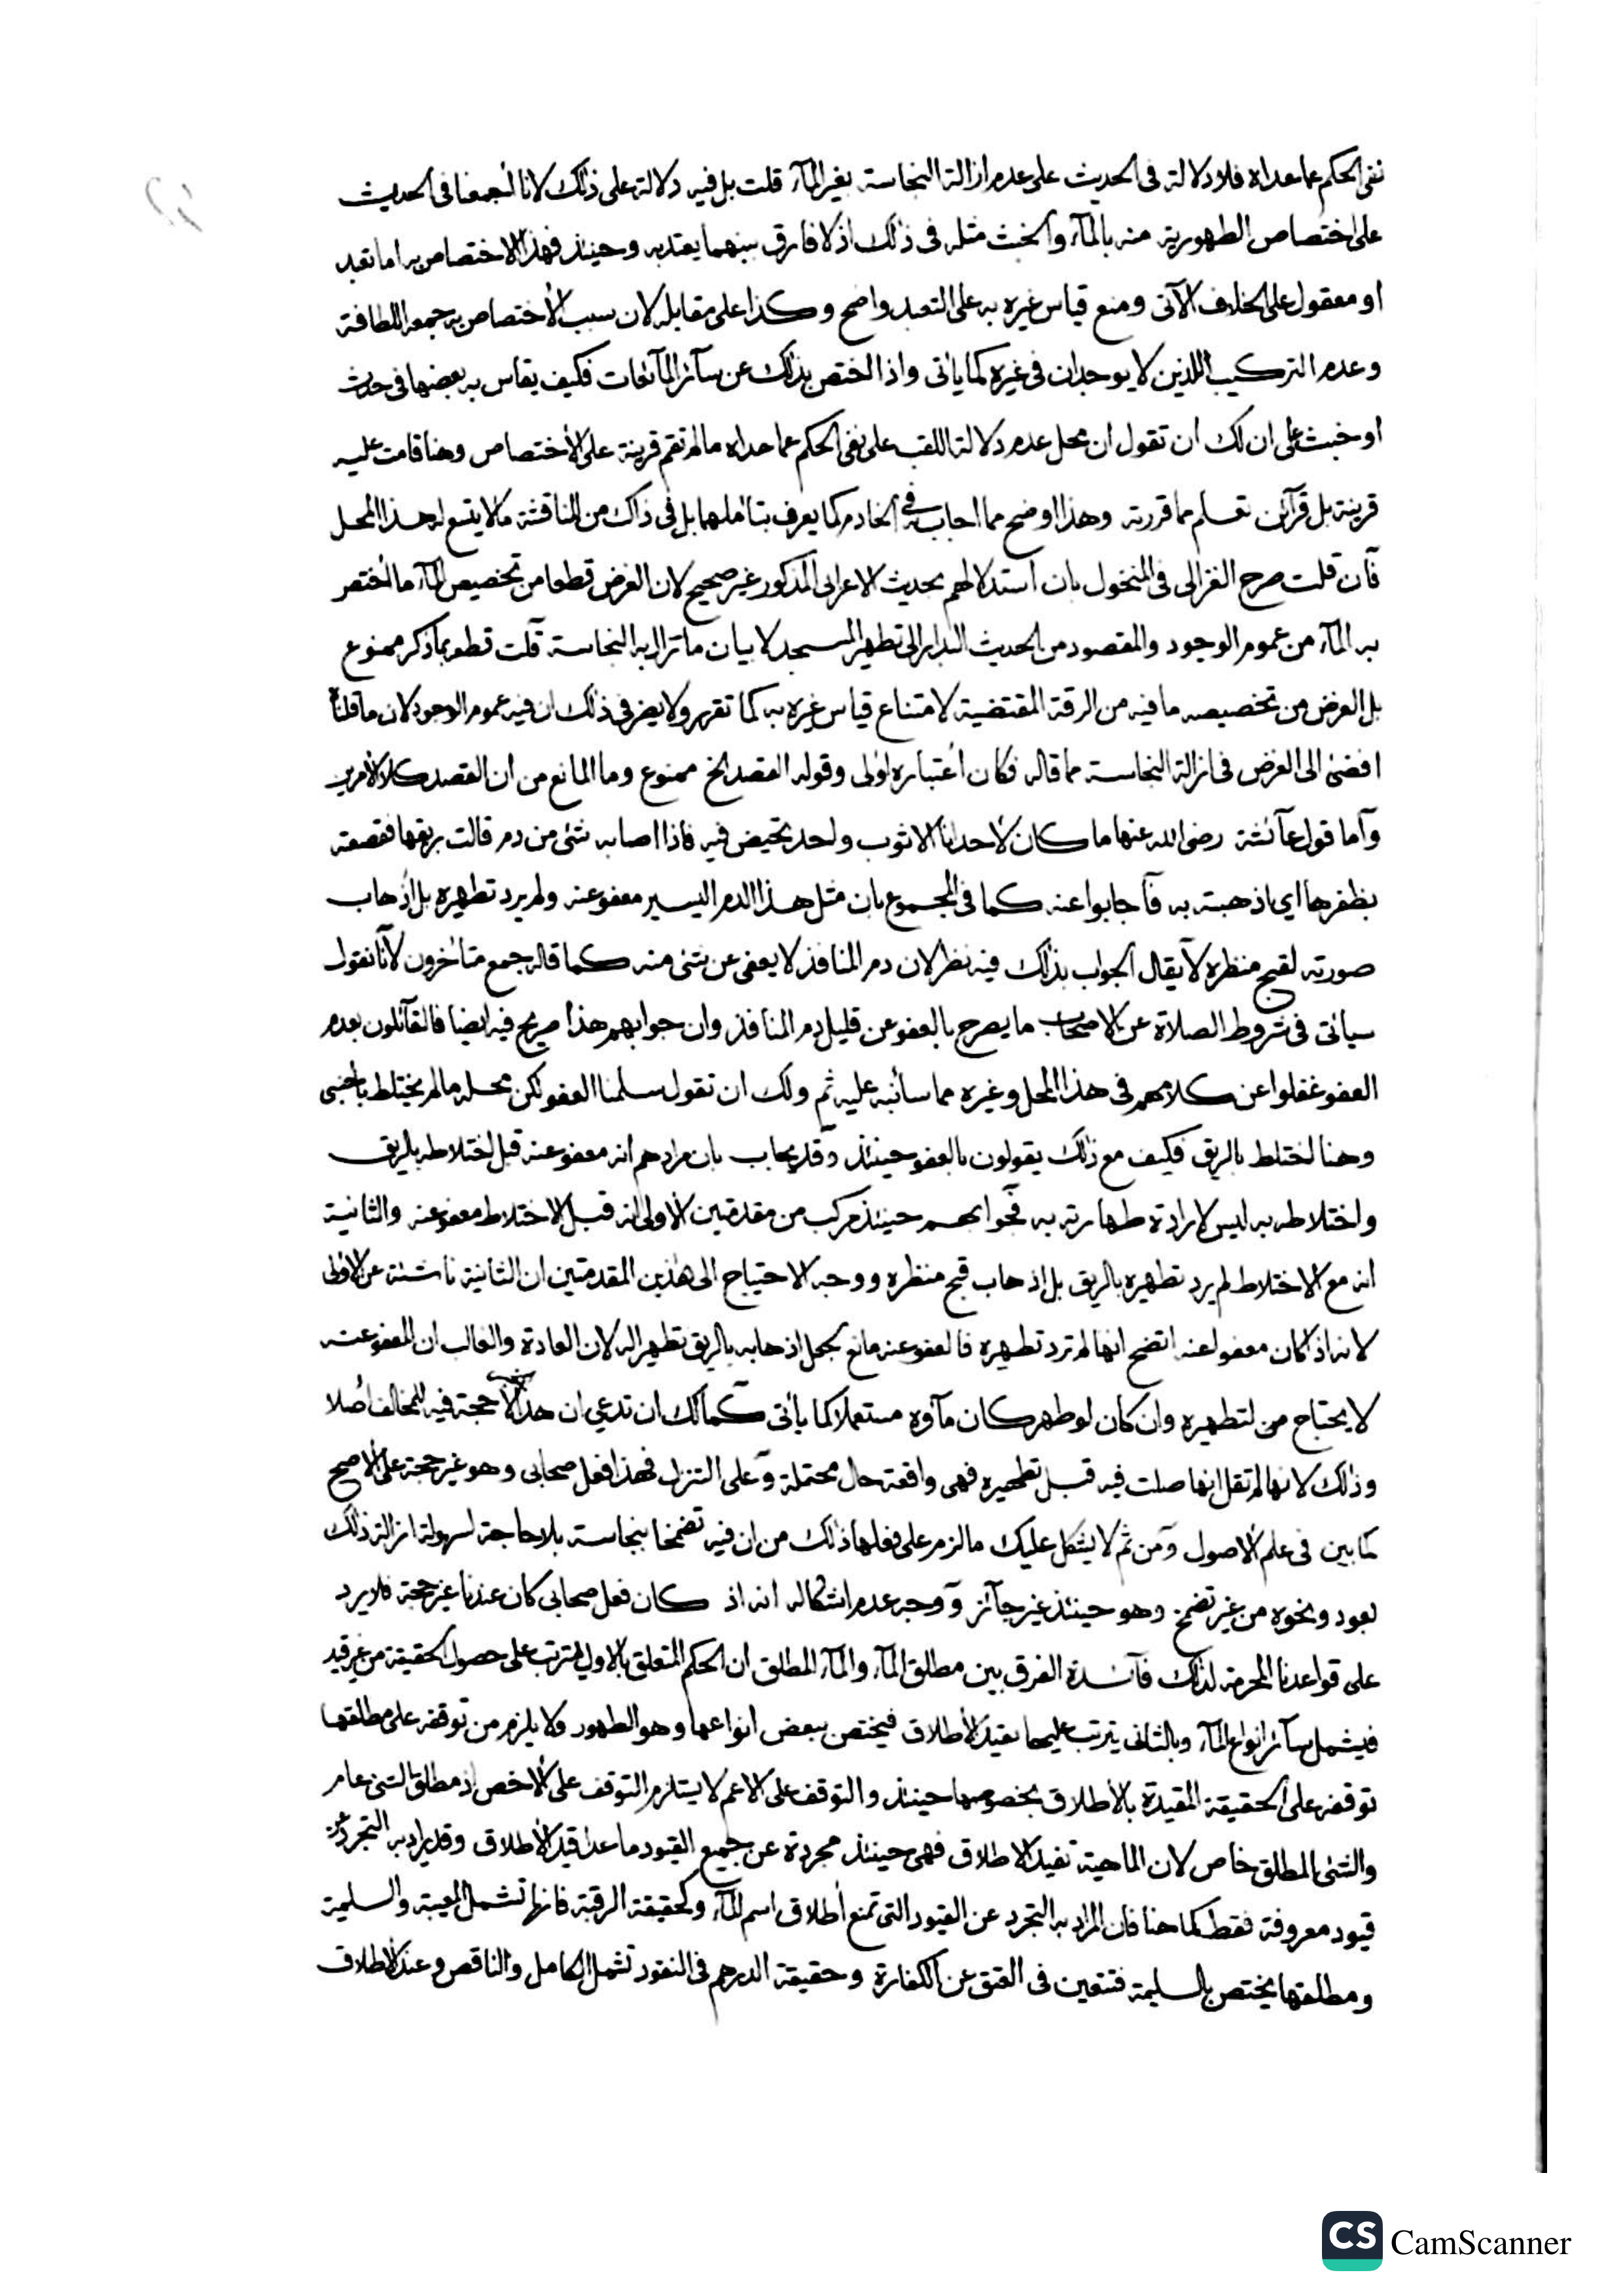 نفى الحكم عما عداه فلا دلالة فى الحديث على عدم ازالة النجاسة بغير المآء قلت بل فيه دلالة على ذلك لانا أجمعنا فى الحديث
على اختصاص الطهورية منه بالمآء والخبث مثله فى ذلك اذ لا فارق بينهما يعتد به وحينئذ فهذا الاختصاص به اما تعبد
او معقول على الخلاف الآتى ومنع قياس غيره به على التعبد واضح وكذا على مقابله لان سبب الأختصاص به جمعه اللطافة
وعدم التركيب اللذين لا يوجدان فى غيره كما ياتى واذا اختص بذلك عن سآئر المآئعات فكيف يقاس به بعضها فى حدث
او خبث على ان لك ان تقول ان محل عدم دلالة اللقب على نفى الحكم عما عداه ما لم تقم قرينة على الأختصاص وهنا قامت عليه
قرينة بل قرآئن تعلم مما قررته وهذا اوضح مما اجاب به فى الخادم كما يعرف بتأملهما بل فى ذاك من المناقشة ما لا يتسع له هذا المحل
فآن قلت صرح الغزالى فى المنخول بان استدلالهم بحديث الاعرابى المذكور غير صحيح لان الغرض قطعا من تخصيص المآء ما اختص
به المآء من عموم الوجود والمقصود من الحديث البدار الى تطهير المسجد لا بيان ما تزال به النجاسة قلت قطعه بما ذكر ممنوع
بل الغرض من تخصيصه ما فيه من الرقة المقتضية لامتناع قياس غيره به كما تقرر ولا يضر فى ذلك ان فيه عموم الوجود لان ما قلناه
افضى الى الغرض فى ازالة النجاسة مما قاله فكان أعتباره اولى وقوله القصد الخ ممنوع وما المانع من ان القصد كلا الأمرين
وآما قول عآئشة رضى الله عنها ما كان لأحدانا الا ثوب واحد تحيض فيه فاذا اصابه شئ من دم قالت بريقها فقصعته
بظفرها اى اذهبته به فآجابوا عنه كما فى المجموع بان مثل هذا الدم اليسير معفو عنه ولم يرد تطهيره بل أذهاب
صورته لقبح منظره لآ يقال الجواب بذلك فيه نظر لان دم المنافذ لا يعفى عن شئ منه كما قاله جمع متأخرون لآنا نقول
سيأتى فى شروط الصلاة عن الاصحاب ما يصرح بالعفو عن قليل دم المنافذ وان جوابهم هذا صريح فيه ايضا فالقآئلون بعدم
العفو غفلوا عن كلامهم فى هذا المحل وغيره مما سأنبه عليه ثم ولك ان تقول سلمنا العفو لكن محله ما لم يختلط باجنبى
وهنا اختلط بالريق فكيف مع ذلك يقولون بالعفو حينئذ وقد يجاب بان مرادهم انه معفو عنه قبل اختلاطه بالريق
واختلاطه به ليس لارادة طهارته به فجوابهم حينئذ مركب من مقدمتين الأولى انه قبل الاختلاط معفو عنه والثانية
انه مع الاختلاط لم يرد تطهيره بالريق بل اذهاب قبح منظره ووجه الاحتياج الى هذين المقدمتين ان الثانية ناشئة عن الاولى
لانه اذا كان معفوا عنه اتضح انها لم ترد تطهيره فالعفو عنه مانع بجعل اذهابه بالريق تطهيرا له لان العادة والغالب ان المعفو عنه
لا يحتاج من لتطهيره وان كان لو طهر كان مآوه مستعملا كما يأتى كما لك ان تدعي ان هذا لا حجة فيه للمخالف أصلا
وذلك لانها لم تقل انها صلت فيه قبل تطهيره فهى واقعة حال محتملة وعلى التنزل فهذا فعل صحابى وهو غير حجة على الأصح
كما بين فى علم الأصول ومن ثم لا يشكل عليك ما لزم على فعلها ذلك من ان فيه تضمخا بنجاسة بلا حاجة لسهولة ازالة ذلك
بعود ونحوه من غير تضمخ وهو حينئذ غير جآئز ووجه عدم اشكاله انه اذ كان فعل صحابى كان عندنا غير حجة فلا يرد
على قواعدنا المحرمة لذلك فآئدة الفرق بين مطلق المآء والمآء المطلق ان الحكم المتعلق بالاول يترتب على حصول الحقيقة من غير قيد
فيشمل سآئر انواع المآء وبالثانى يترتب عليها بقيد الأطلاق فيختص ببعض انواعها وهو الطهور ولا يلزم من توقفه على مطلقها
توقفه على الحقيقة المقيدة بالأطلاق بخصوصها حينئذ والتوقف على الاعم لا يستلزم التوقف على الأخص اذ مطلق الشئ عام
والشئ المطلق خاص لان الماهية تفيد الاطلاق فهى حينئذ مجردة عن جميع القيود ما عدا قيد الأطلاق وقد يراد به التجرد عن
قيود معروفة فقط كما هنا فان المراد به التجرد عن القيود التى تمنع أطلاق اسم المآء وكحقيقة الرقبة فانها تشمل المعيبة والسليمة
ومطلقها يختص بالسليمة فتتعين فى العتق عن الكفارة وحقيقة الدرهم فى النقود تشمل الكامل والناقص وعند الاطلاق
CS CamScanner